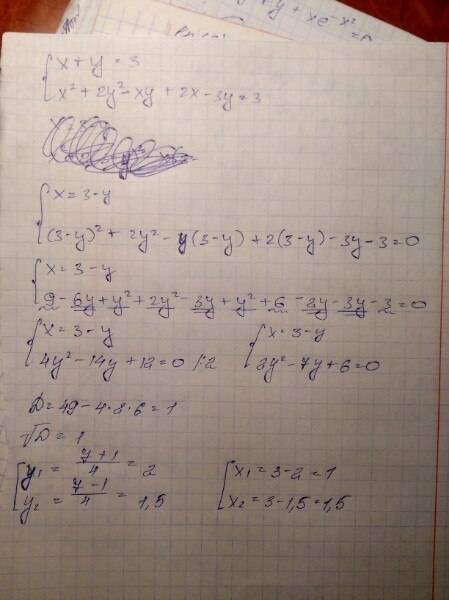 y + xe^{-x^2}
= 0
{ x + y = 3
x² + 2y² - xy + 2x - 3y = 3
{ x = 3 - y
(3-y)² + 2y² - y(3-y) + 2(3-y) - 3y - 3 = 0
{ x = 3 - y
9 - 6y + y² + 2y² - 3y + y² + 6 - 2y - 3y - 3 = 0
{ x = 3 - y { x = 3 - y
4y² - 14y + 12 = 0 /:2 2y² - 7y + 6 = 0
D = 49 - 4·2·6 = 1
√D = 1
[ y₁ = (7+1)/4 = 2 [ x₁ = 3 - 2 = 1
y₂ = (7-1)/4 = 1,5 x₂ = 3 - 1,5 = 1,5